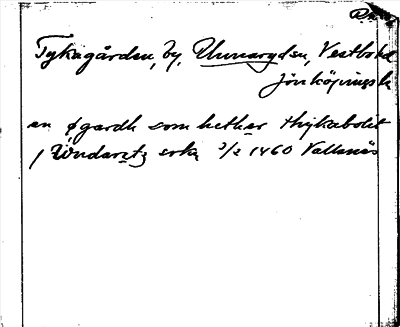 Tykagården, by, Unnaryds sn, Vestbo hd
Jönköpings l.
en øgardh som hether thykabolit
j Wndaretz sokn 3/2 1460 Vallsnäs